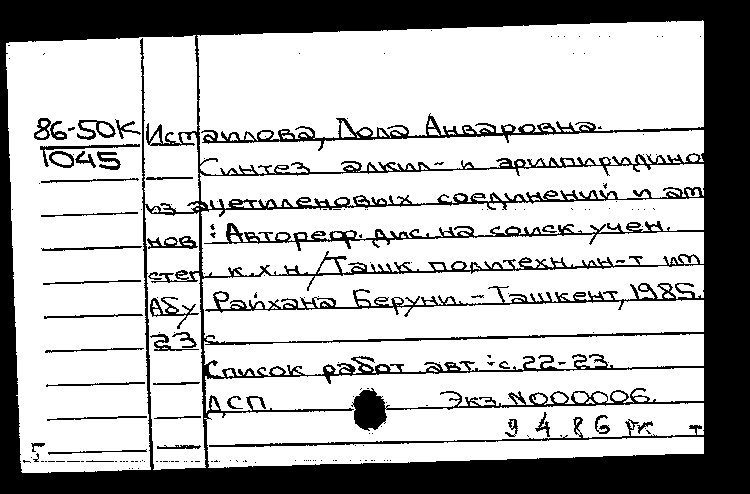 86-50К Исмаилова, Лола Анваровна.
1045 Синтез алкил- и арилпиридино
из ацетиленовых соединений и ам
нов : Автореф. дис. на соиск. учен.
степ. к.х.н. / Ташк. политехн. ин-т им
Абу Райхана Беруни. - Ташкент, 1985.
23 с
Список работ авт.: с. 22-23.
ДСП. Экз. N000006.
9.4.86 РК
5